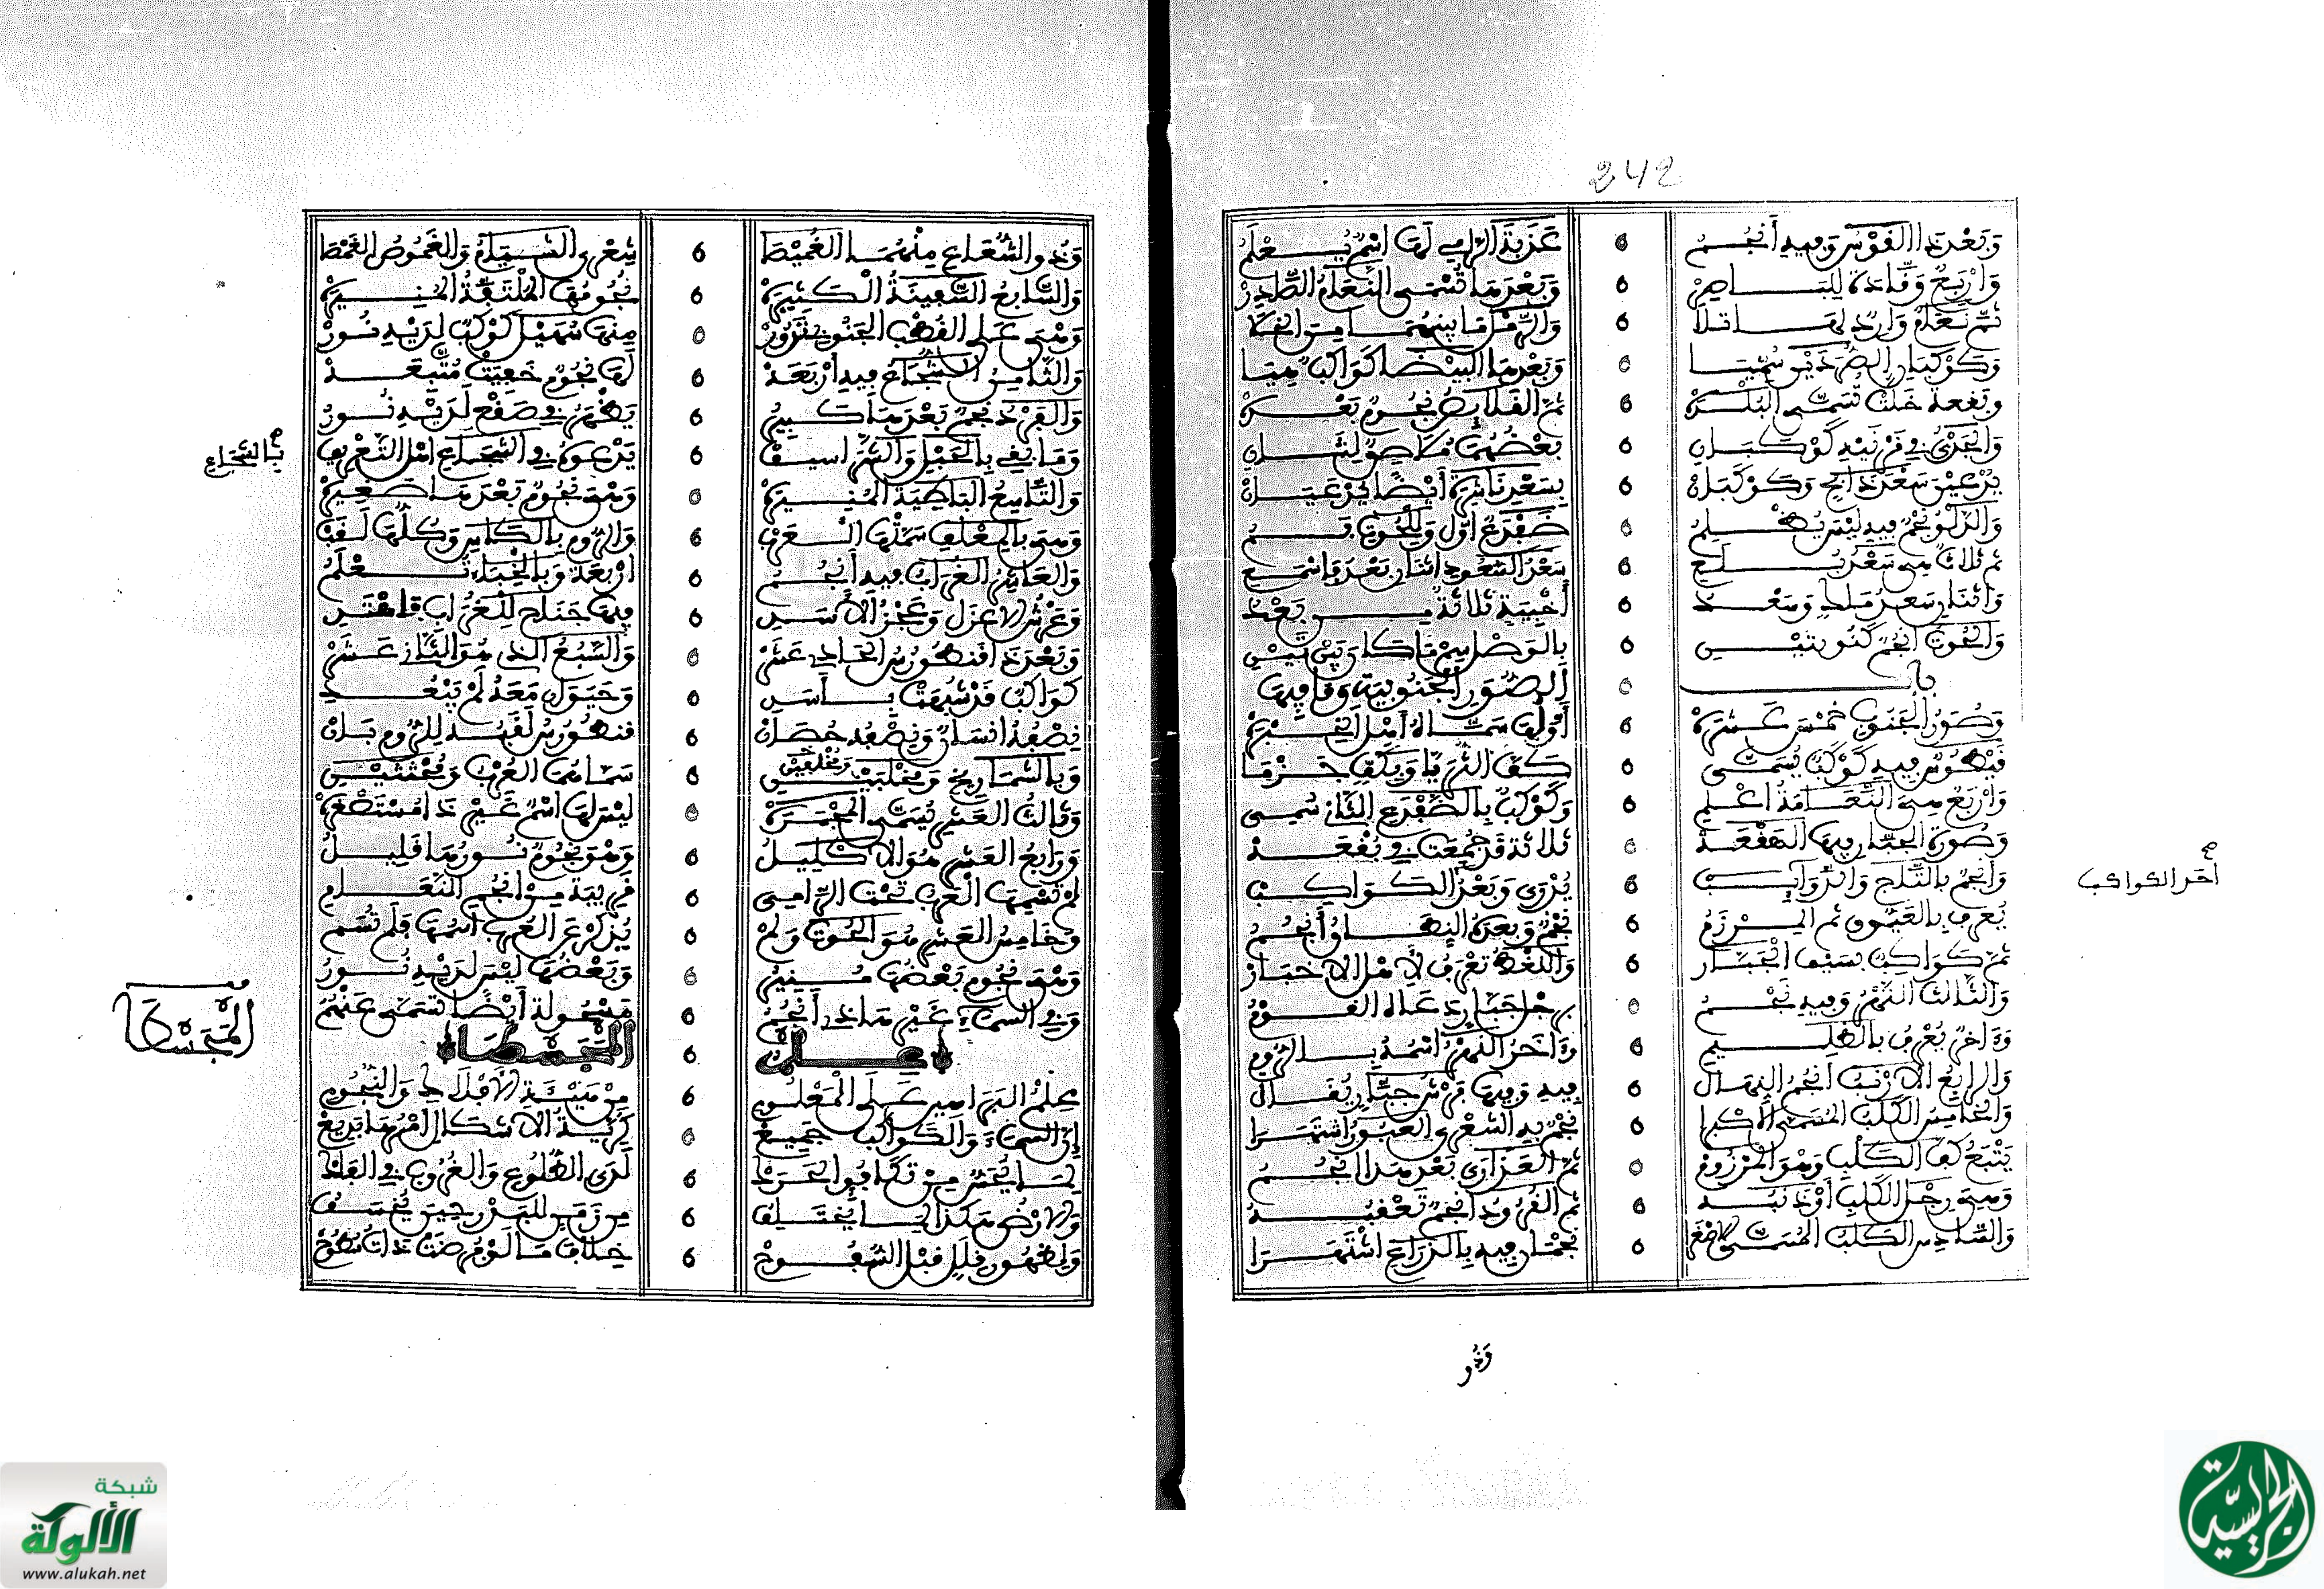 242
وَبَعْدَ ذَا الْقَوْسُ وَفِيهِ أَنْجُمُ عَذَبَةُ الرَّامِي لَهَا اسْمٌ يُعْلَمُ
وَأَرْبَعٌ وَقَائِدَةٌ لِلْبَاهِرْ وَبَعْدَهَا تُسْمَى النَّعَامُ الصَّادِرْ
ثُمَّ نَعَامٌ وَارِدٌ لَهَا تَلَا وَالرَّمْلُ مَا بَيْنَهُمَا مِنَ الْخَلَا
وَكَوْكَبَانِ الصُّرَدَيْنِ سُمِّيَا وَبَعْدَهَا الْبَيْضَا كَوَاكِبٌ هِيَا
وَبُقْعَةٌ خَلَتْ تُسَمَّى الْبَلْدَهْ ثُمَّ الْقَلَائِصُ نُجُومٌ بَعْدَهْ
وَالْجَدْيُ فِي قَرْنَيْهِ كَوْكَبَانِ بَعْضُهُمَا مُلَاصِقٌ لِثَانِ
يُدْعَيْنَ سَعْدَ ذَابِحٍ وَكَوْكَبَانْ بِسَعْدِ نَاشِرَةٍ أَيْضًا يُدْعَيَانْ
وَالدَّلْوُ نَجْمٌ فِيهِ لَيْسَ يُظْلِمُ ضَفْدَعٌ أَوَّلٌ وَلِلْحُوتِ فَمُ
ثُمَّ ثَلَاثٌ هِيَ سَعْدُ بُلَعِ سَعْدُ السُّعُودِ اثْنَانِ بَعْدُ فَاسْمَعِ
وَاثْنَانِ سَعْدُ مَلِكٍ وَسَعْدُ أَخْبِيَةٍ ثَلَاثَةٌ مِنْ بَعْدُ
وَالْحُوتُ أَنْجُمٌ كَنُونَتَيْنِ بِالْوَصْلِ مِنْهَا كَاوَتَيْ تَيْنِ
بَابُ الصُّوَرِ الْجَنُوبِيَّةِ وَمَا فِيهَا
وَصُوَرُ الْجَنُوبِ خَمْسَ عَشْرَهْ أَوَّلُهَا سَمَّاهُ أَهْلُ الْخِبْرَهْ
قِيطُوسُ فِيهِ كَوْكَبٌ يُسَمَّى كَفَّ الثُّرَيَّا وَبِكَفٍّ جَذْمَا
وَأَرْبَعٌ هِيَ النَّعَامَةُ اعْلَمِ وَكَوْكَبٌ بِالضَّفْدَعِ الثَّانِي سُمِي
وَصُورَةُ الْجَبَّارِ فِيهَا الْهَقْعَهْ ثَلَاثَةٌ قَدْ جُمِعَتْ فِي بُقْعَهْ
وَأَنْجُمٌ بِالتَّاجِ وَالذَّوَائِبْ يُرْوَى وَبَعْدُ الْكَوَاكِبْ
أَحَدُ الكواكب
يُعْرَفُ بِالْعَيُّوقِ ثُمَّ الْمِرْزَمُ نَجْمٌ وَبَعْدَهُ النِّطَاقُ أَنْجُمُ
ثُمَّ كَوَاكِبٌ بِسَيْفِ الْجَبَّارْ وَاللَّقْطُ تُعْرَفُ لِأَهْلِ الْأَخْبَارْ
وَالثَّالِثُ النَّهْرُ وَفِيهِ نَجْمُ رِجْلُ جَبَّارٍ دَعَاهُ الْقَوْمُ
وَآخَرٌ يُعْرَفُ بِالظَّلِيمِ وَآخِرُ النَّهْرِ اسْمُهُ بِالرُّومِ
وَالرَّابِعُ الْأَرْنَبُ أَنْجُمُ النِّهَالْ فِيهِ وَفِيهَا عَرْشُ جَبَّارٍ يُقَالْ
وَالْخَامِسُ الْكَلْبُ الْمُسَمَّى الْأَكْبَرَا نَجْمٌ بِهِ الشِّعْرَى الْعَبُورُ اشْتَهَرَا
يَتْبَعُ كَفَّ الْكَلْبِ وَهْوَ الْمِرْزَمُ ثُمَّ الْعَذَارَى بَعْدَ هَذَا أَنْجُمُ
وَهِيَ رِجْلُ الْكَلْبِ أَوْ ذَنَبُهُ ثُمَّ الْقُرُودُ أَنْجُمٌ تَعْقُبُهُ
وَالسَّادِسُ الْكَلْبُ الْمُسَمَّى الْأَصْغَرَا نَجْمَانِ فِيهِ بِالذِّرَاعِ اشْتَهَرَا
وَذُو
وَذُو الشُّعَاعِ مِنْهُمَا الْغُمَيْصَا شِعْرَى الشَّمَالِ وَالْغَمُوصُ الْغَمْصَا
وَالسَّابِعُ السَّفِينَةُ الْكَبِيرَهْ نُجُومُهَا الْمُلْتَفَّةُ الْمُنِيرَهْ
وَهْيَ عَلَى الْقُطْبِ الْجَنُوبِ تَدُورْ مِنْهَا سُهَيْلٌ كَوْكَبٌ لَدَيْهِ نُورْ
وَالثَّامِنُ الشُّجَاعُ فِيهِ أَرْبَعَهْ لَهَا نُجُومٌ خَفِيَتْ مُتَّبَعَهْ
وَالْفَرْدُ نَجْمٌ بَعْدَهَا كَبِيرُ يَظْهَرُ فِي صَفْحٍ لَدَيْهِ نُورُ
وَمَا بَقِي بِالْخَيْلِ وَالشَّرَاسِيفْ يَدْعُوهُ فِي الشُّجَاعِ أَهْلُ التَّعْرِيفْ
بالشجاع
وَالتَّاسِعُ الْبَاطِيَةُ الْمُنِيرَهْ وَهْيَ نُجُومٌ بَعْدَهَا صَغِيرَهْ
وَهْيَ بِالْمِعْلَفِ سَمَّتْهَا الْعَرَبْ وَالرُّومُ بِالْكَاسِ وَكُلُّهَا لَقَبْ
وَالْعَاشِرُ الْغُرَابُ فِيهِ أَنْجُمُ أَرْبَعَةٌ وَبِالْخِبَاءِ تُعْلَمُ
وَعَرْشُ الْأَعْزَلِ وَعَجْزُ الْأَسَدِ فِيهَا جَنَاحٌ لِلْغُرَابِ فَاهْتَدِ
وَبَعْدَ ذَا قَنْطُورُسُ الْحَادِي عَشَرْ وَالسَّبُعُ الَّذِي هُوَ الثَّانِي عَشَرْ
كَوَاكِبٌ قَدْ شُبِّهَتْ بِأَسَدِ وَحَيَوَانٍ مَعَهُ لَمْ يَبْعُدِ
نِصْفُهُ إِنْسَانٌ وَنِصْفُهُ حِصَانْ قَنْطُورُسُ لَقَبُهُ لِلرُّومِ بَانْ
وَبِالشَّمَارِيخِ وَمُخْلِفَيْنِ سَمَّاهُمَا الْعُرْبُ وَمُحْنِثَيْنِ
وَثَالِثُ الْعَشْرِ يُسَمَّى الْمِجْمَرَهْ لَيْسَ لَهَا اسْمٌ غَيْرُ ذَا مُسْتَصْغَرَهْ
وَرَابِعُ الْعَشْرِ هُوَ الْإِكْلِيلُ وَهْوَ نُجُومٌ نُورُهَا قَلِيلُ
لَمْ تُسَمِّهَا الْعَرَبْ تَحْتَ الرَّامِي قَرِيبَةٌ مِنْ أَنْجُمِ النَّعَامِ
وَخَامِسُ الْعَشْرِ هُوَ الْحُوتُ وَلَمْ يُذْكَرْ عَنِ الْعُرْبِ اسْمُهَا فَلَمْ تُسَمْ
وَهْيَ نُجُومٌ بَعْضُهَا مُنِيرُ وَبَعْضُهَا لَيْسَ لَدَيْهِ نُورُ
وَفِي السَّمَاءِ غَيْرَ هَذِي أَنْجُمُ مَجْهُولَةٌ أَيْضًا تُسَمَّى عَنْهُمُ
عِلْمُ الْمَجَسْطَا
الْمَجَسْطَا
عِلْمُ الْبَرَاهِينِ عَلَى الْمَعْلُومِ مِنْ هَيْئَةِ الْأَفْلَاكِ وَالنُّجُومِ
إِنَّ السَّمَاءَ وَالْكَوَاكِبَ جَمِيعْ كُرِيَّةُ الْأَشْكَالِ أَمْرُهَا بَدِيعْ
لِمَا يُحَسُّ مِنْ تَكَافُؤِ الْحَرَكْ لَدَى الطُّلُوعِ وَالْغُرُوبِ فِي الْفَلَكْ
وَالْأَرْضُ هَكَذَا لِمَا يَخْتَلِفُ مِنْ زَمَنٍ لِلْبَدْرِ حِينَ يُخْسَفُ
شبكة
الألوكة
www.alukah.net